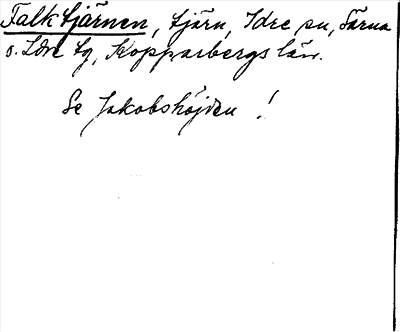 Falktjärnen, tjärn, Idre sn, Särna
o. Idre tg, Kopparbergs län.
Se Jakobshöjden !